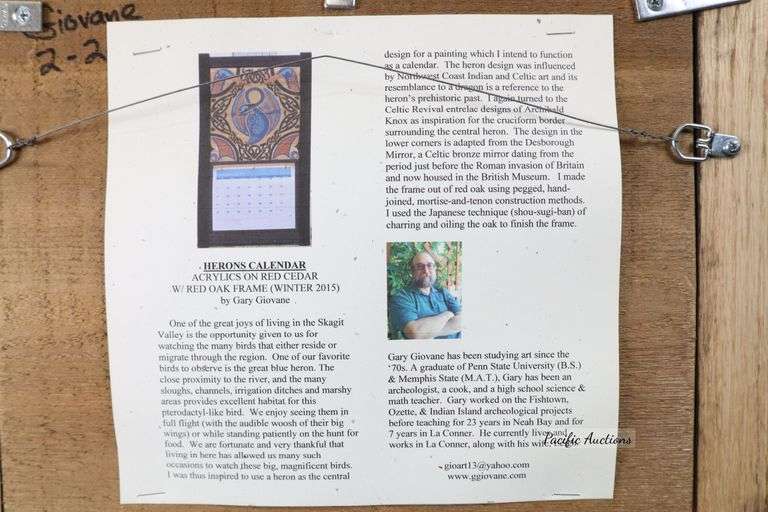 Giovane
2-2
HERONS CALENDAR
ACRYLICS ON RED CEDAR
W/ RED OAK FRAME (WINTER 2015)
by Gary Giovane
One of the great joys of living in the Skagit
Valley is the opportunity given to us for
watching the many birds that either reside or
migrate through the region. One of our favorite
birds to observe is the great blue heron. The
close proximity to the river, and the many
sloughs, channels, irrigation ditches and marshy
areas provides excellent habitat for this
pterodactyl-like bird. We enjoy seeing them in
full flight (with the audible woosh of their big
wings) or while standing patiently on the hunt for
food. We are fortunate and very thankful that
living in here has allowed us many such
occasions to watch these big, magnificent birds.
I was thus inspired to use a heron as the central
design for a painting which I intend to function
as a calendar. The heron design was influenced
by Northwest Coast Indian and Celtic art and its
resemblance to a dragon is a reference to the
heron's prehistoric past. I again turned to the
Celtic Revival entrelac designs of Archibald
Knox as inspiration for the cruciform border
surrounding the central heron. The design in the
lower corners is adapted from the Desborough
Mirror, a Celtic bronze mirror dating from the
period just before the Roman invasion of Britain
and now housed in the British Museum. I made
the frame out of red oak using pegged, hand-
joined, mortise-and-tenon construction methods.
I used the Japanese technique (shou-sugi-ban) of
charring and oiling the oak to finish the frame.
Gary Giovane has been studying art since the
'70s. A graduate of Penn State University (B.S.)
& Memphis State (M.A.T.), Gary has been an
archeologist, a cook, and a high school science &
math teacher. Gary worked on the Fishtown,
Ozette, & Indian Island archeological projects
before teaching for 23 years in Neah Bay and for
7 years in La Conner. He currently lives and
works in La Conner, along with his
Pacific Auctions
gioart13@yahoo.com
www.ggiovane.com